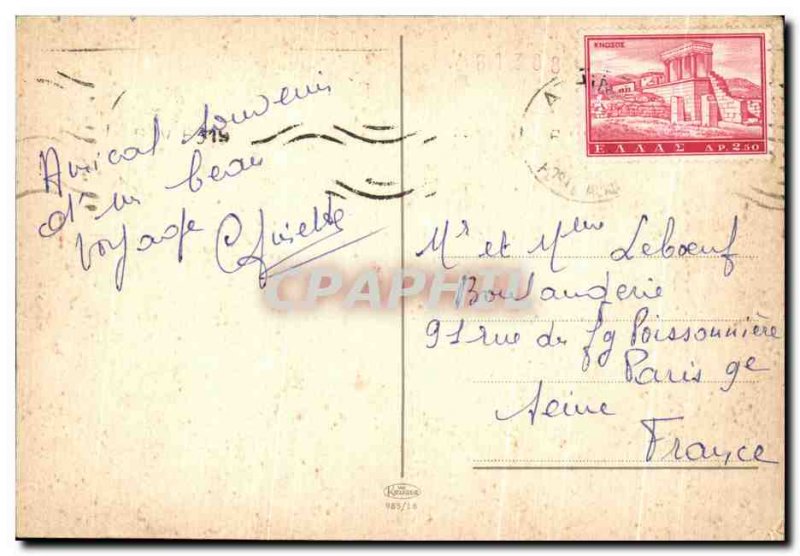 Amical souvenir
d'un beau
voyage
ΚΝΩΣΟΣ
ΕΛΛΑΣ ΔΡ. 2.50
Mr et Mme Leboeuf
Boulangerie
91 rue du fg Poissonnière
Paris 9e
Seine
France
CPAPHIL
985/16